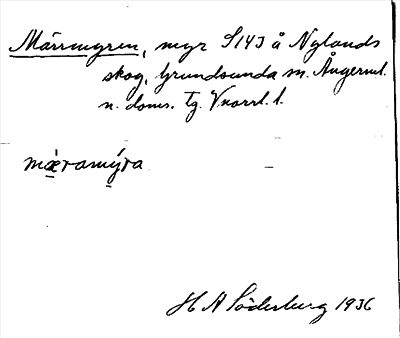 Märrmyren, myr S143 å Nylands
skog, Grundsunda sn. Ångerml.
n. doms. tg. Vnorrl. l.
mæramýra
H A Söderberg 1936